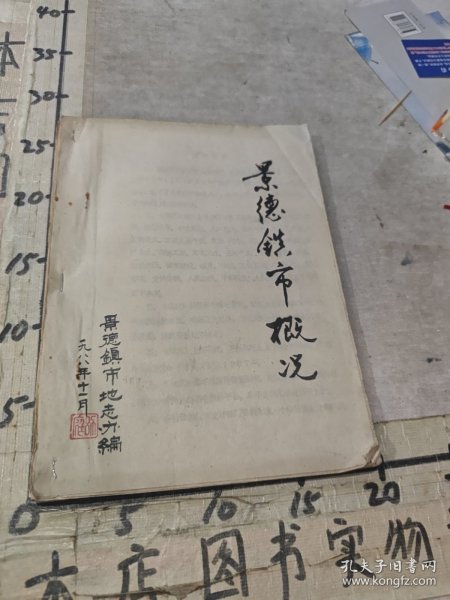 景德鎮市概况
景德鎮市地志办编
一九八八年十一月
40
35
30
25
20
15
10
5
0
5
10
15
20
本店
本店图书实物
孔夫子旧书网
www.kongfz.com